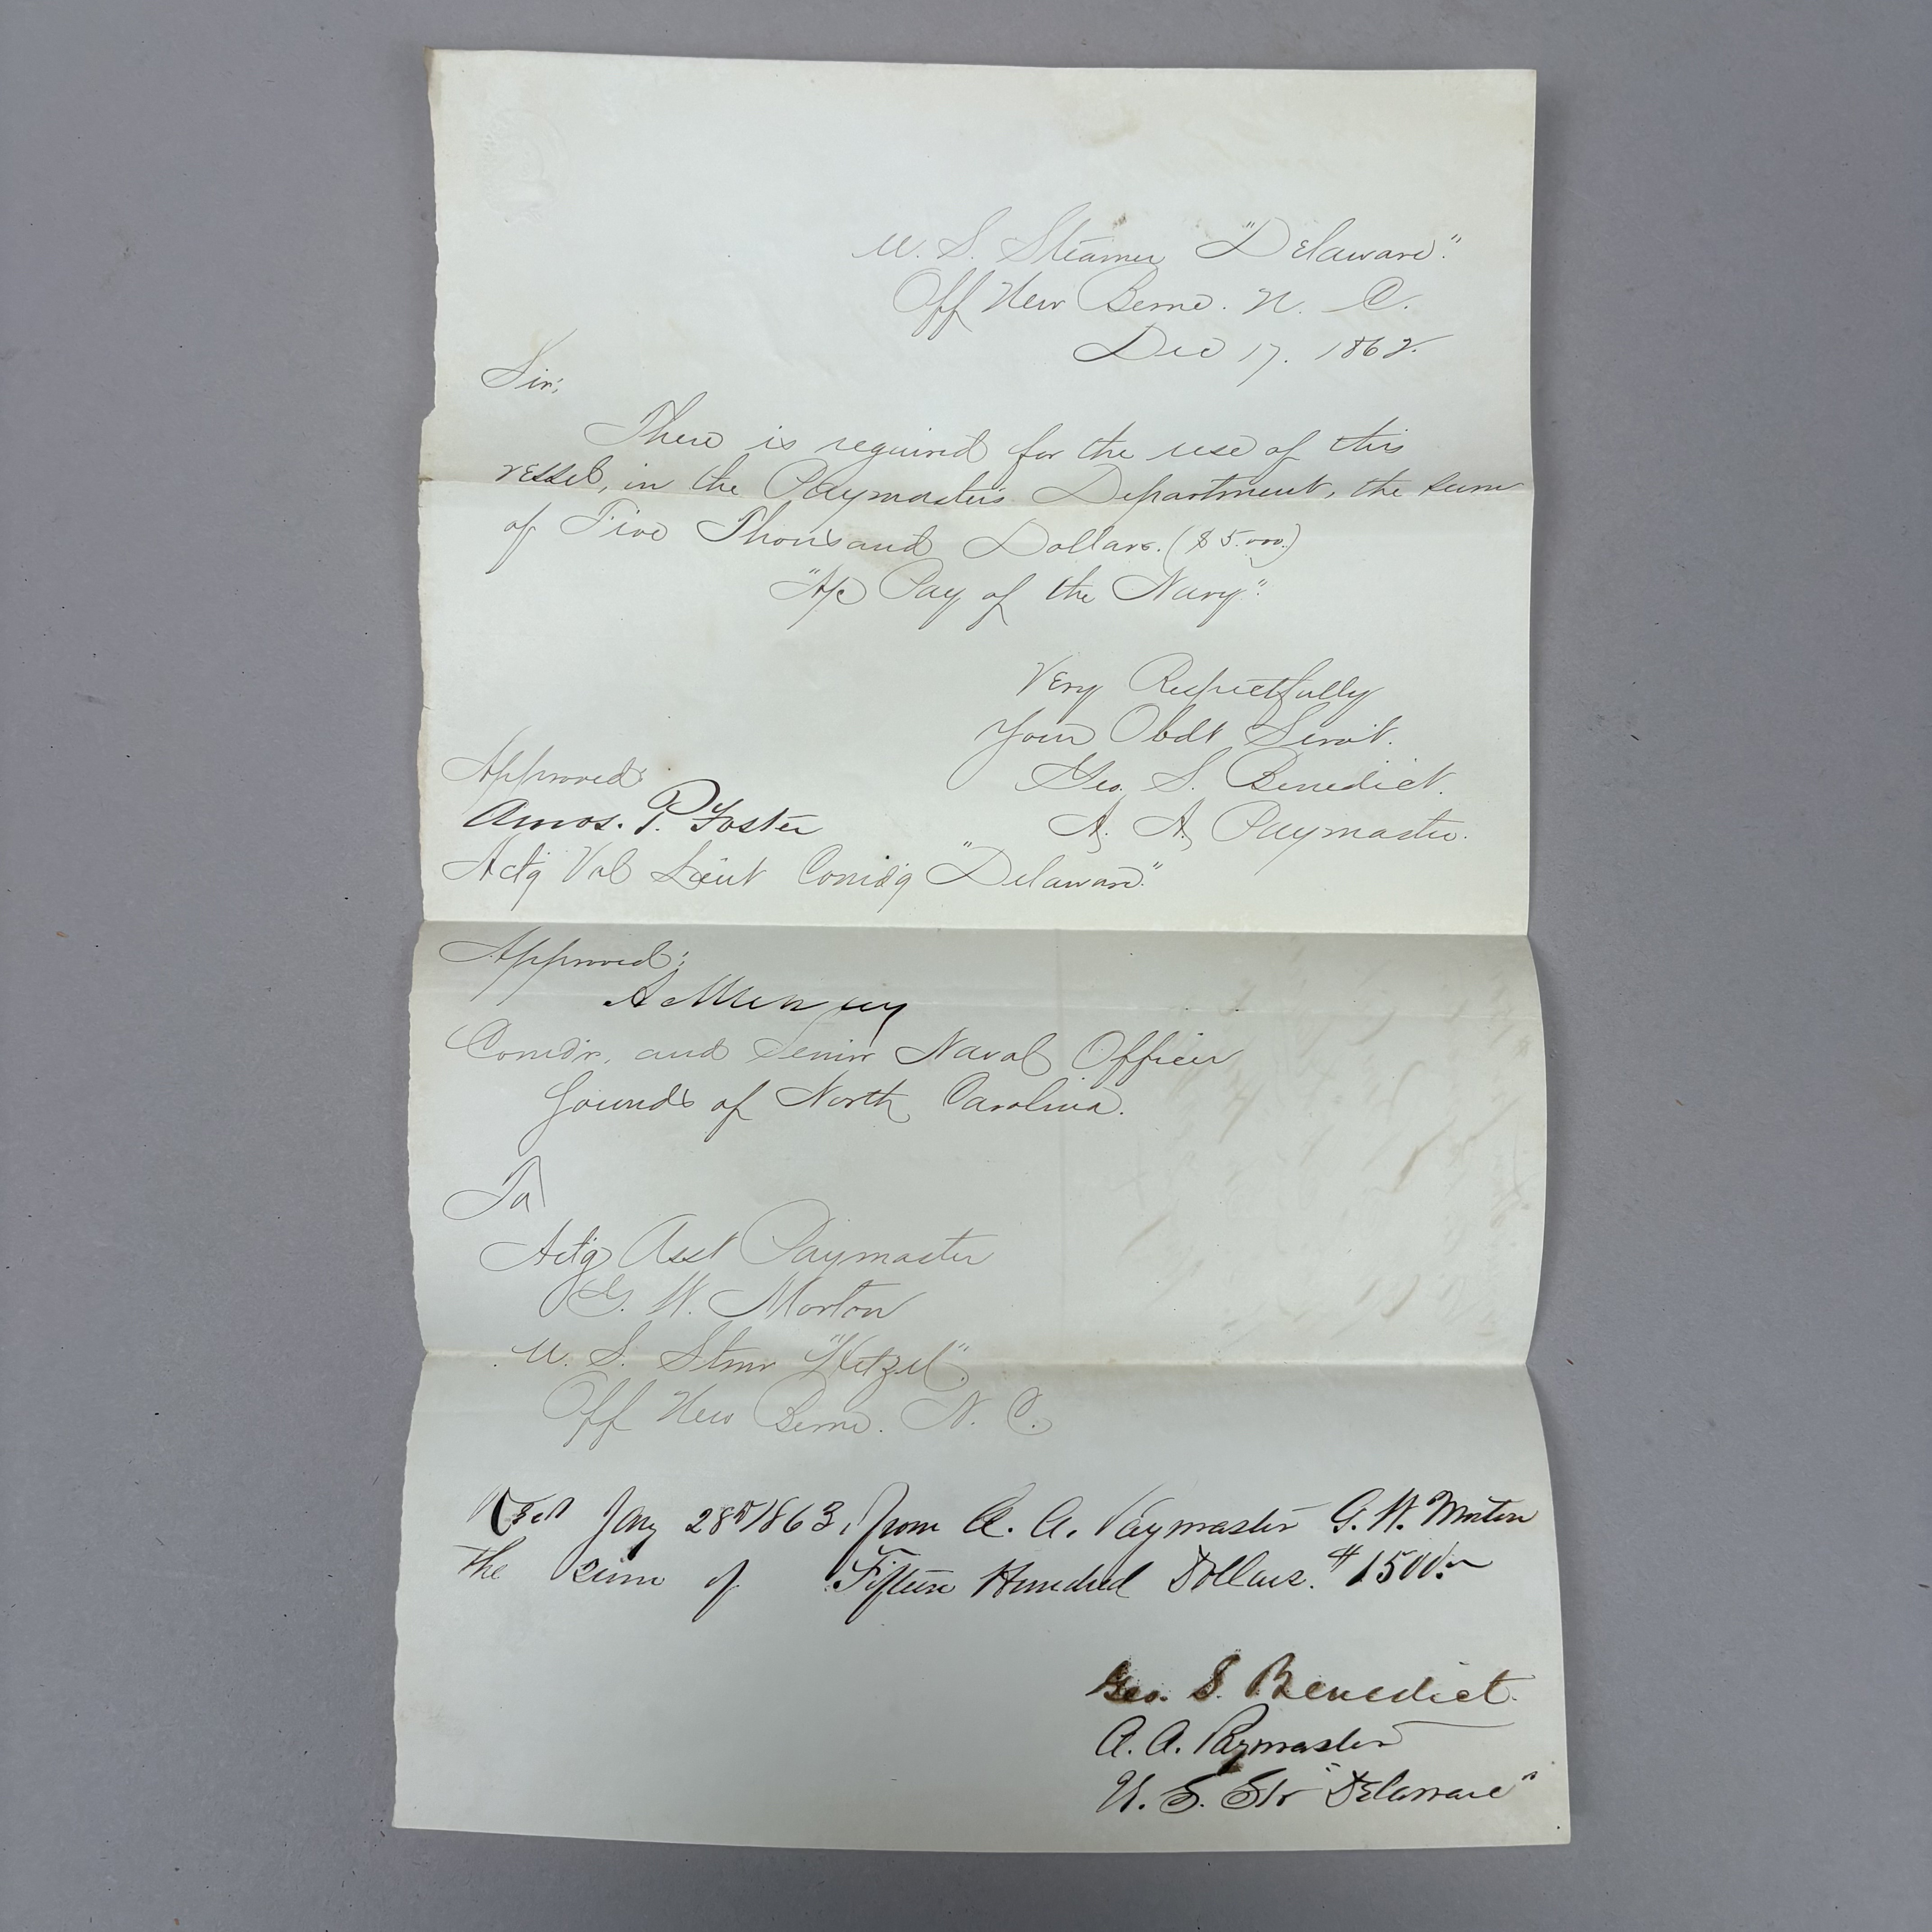 U. S. Steamer "Delaware".
Off New Berne. N. C.
Dec 17. 1862.
Sir;
There is required for the use of this
vessel, in the Paymasters Department, the sum
of Five Thousand Dollars. ($5.000.)
"Ap Pay of the Navy".
Very Respectfully
Your Obdt Servt.
Geo. S. Benedict.
A. A. Paymaster.
Approved:
Amos. P. Foster
Actg Vol Lieut Comdg "Delaware."
Approved;
A Murray
Comdr. and Senior Naval Officer
Sounds of North Carolina.
To
Actg Asst Paymaster
G. W. Morton
U. S. Stmr "Hetzel".
Off New Berne. N. C.
Recd Jany 28th 1863, from A. A. Paymaster G. W. Morton
the sum of Fifteen Hundred Dollars. $1500.
Geo. S. Benedict.
A. A. Paymaster
U. S. Str "Delaware"